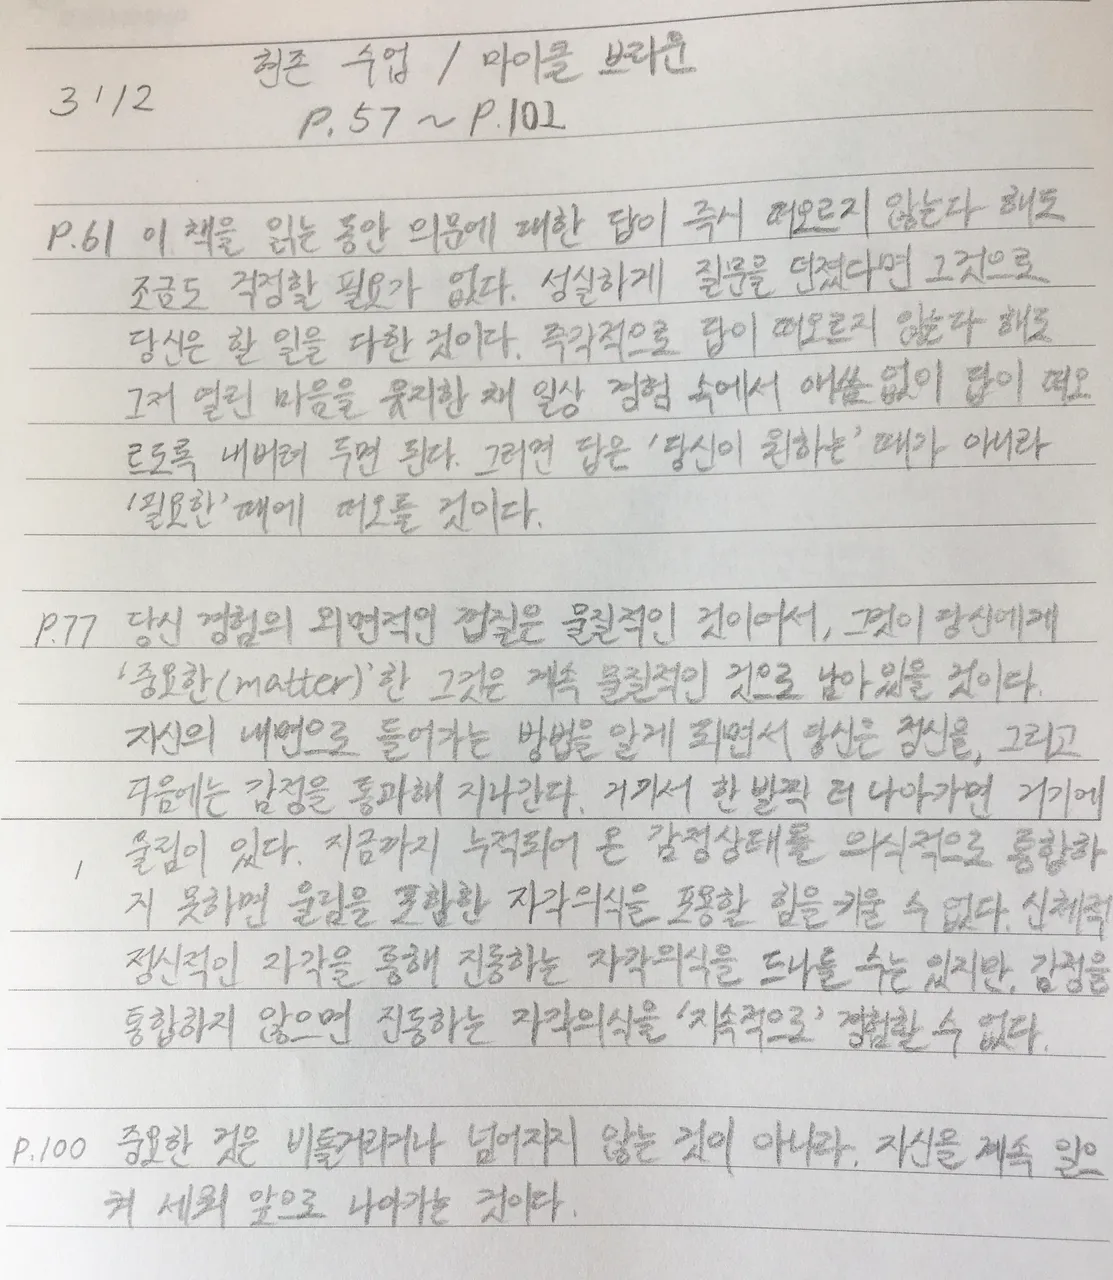 현존 수업 / 마이클 브라운
3 / 12
P. 57 ~ P. 102
P.61 이 책을 읽는 동안 의문에 대한 답이 즉시 떠오르지 않는다 해도
조금도 걱정할 필요가 없다. 성실하게 질문을 던졌다면 그것으로
당신은 할 일을 다한 것이다. 즉각적으로 답이 떠오르지 않는다 해도
그저 열린 마음을 유지한 채 일상 경험 속에서 애씀 없이 답이 떠오
르도록 내버려 두면 된다. 그러면 답은 '당신이 원하는' 때가 아니라
'필요한' 때에 떠오를 것이다.
P.77 당신 경험의 외면적인 껍질은 물질적인 것이어서, 그것이 당신에게
'중요한(matter)'한 그것은 계속 물질적인 것으로 남아 있을 것이다.
자신의 내면으로 들어가는 방법을 알게 되면서 당신은 정신을, 그리고
다음에는 감정을 통과해 지나간다. 거기서 한 발짝 더 나아가면 거기에
울림이 있다. 지금까지 누적되어 온 감정상태를 의식적으로 통합하
지 못하면 울림을 포함한 자각의식을 포용할 힘을 키울 수 없다. 신체적
정신적인 자각을 통해 진동하는 자각의식을 드나들 수는 있지만, 감정을
통합하지 않으면 진동하는 자각의식을 '지속적으로' 경험할 수 없다.
P.100 중요한 것은 비틀거리거나 넘어지지 않는 것이 아니다. 자신을 계속 일으
켜 세워 앞으로 나아가는 것이다.